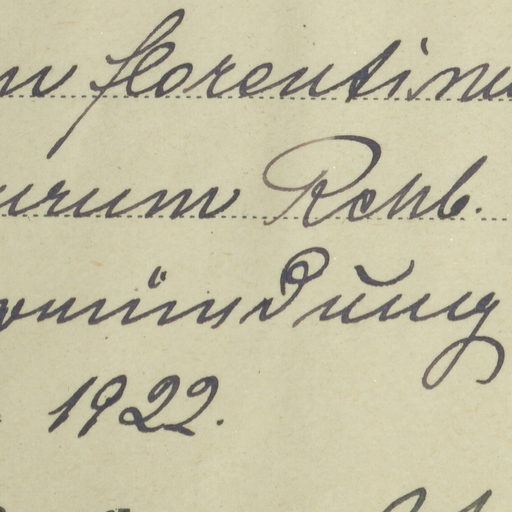 n florentinu
urum Rchb.
mündung
1922.